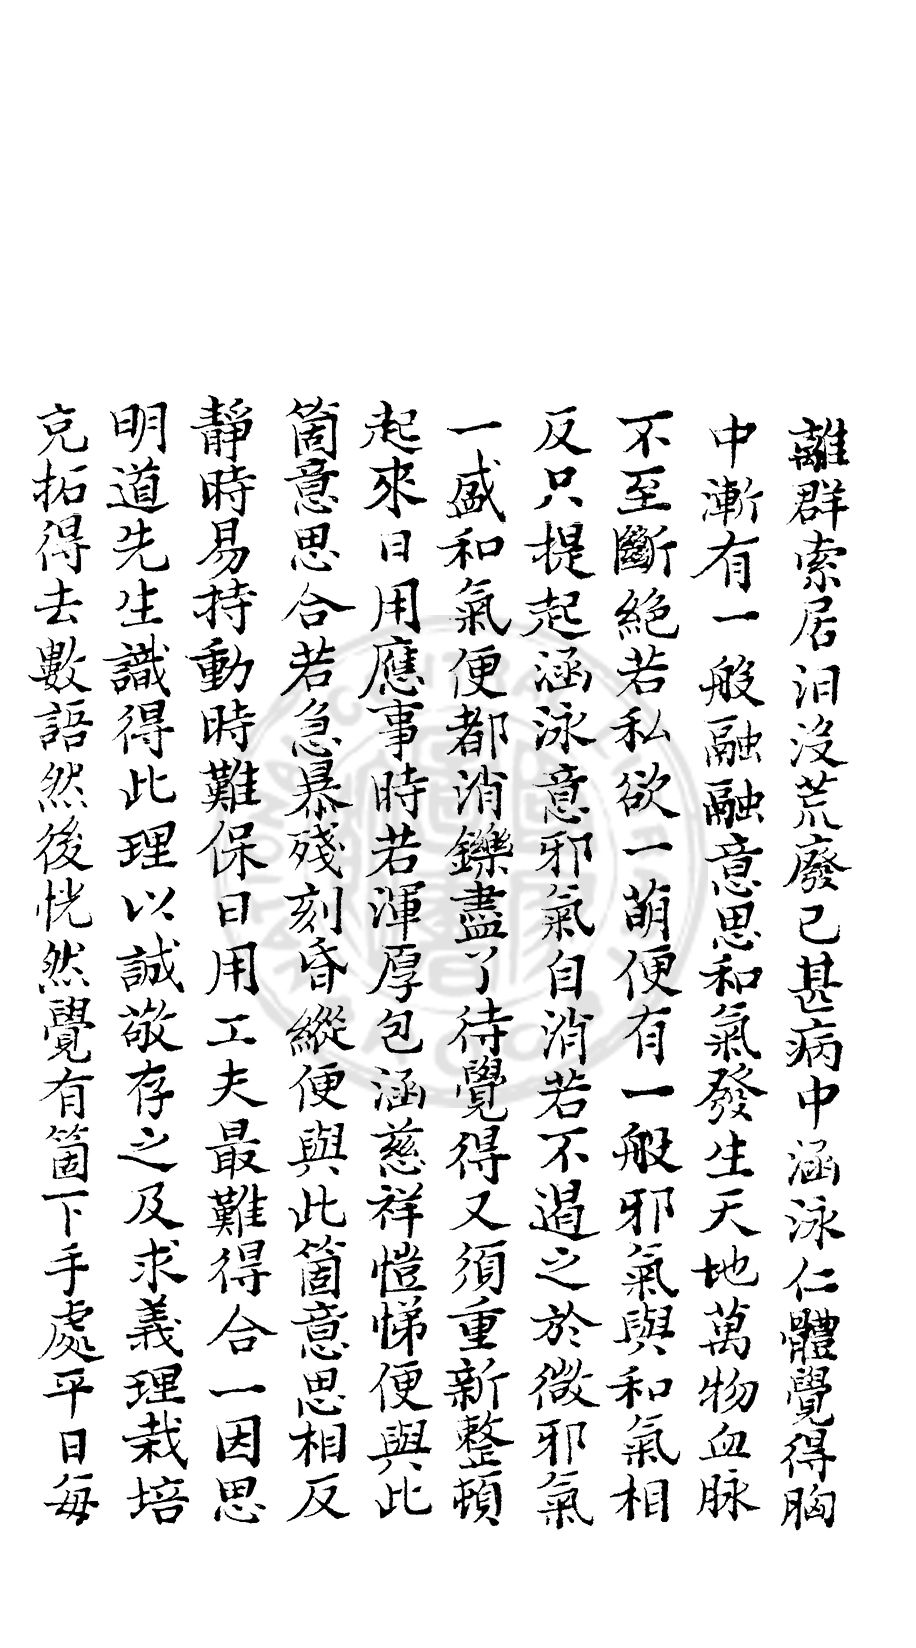 離群索居汨沒荒廢已甚病中涵泳仁體覺得胸
中漸有一般融融意思和氣發生天地萬物血脉
不至斷絕若私欲一萌便有一般邪氣與和氣相
反只提起涵泳意邪氣自消若不遏之於微邪氣
一盛和氣便都消鑠盡了待覺得又須重新整頓
起來日用應事時若渾厚包涵慈祥愷悌便與此
箇意思合若急暴殘刻昏縱便與此箇意思相反
靜時易持動時難保日用工夫最難得合一因思
明道先生識得此理以誠敬存之及求義理栽培
克拓得去數語然後恍然覺有箇下手處平日每